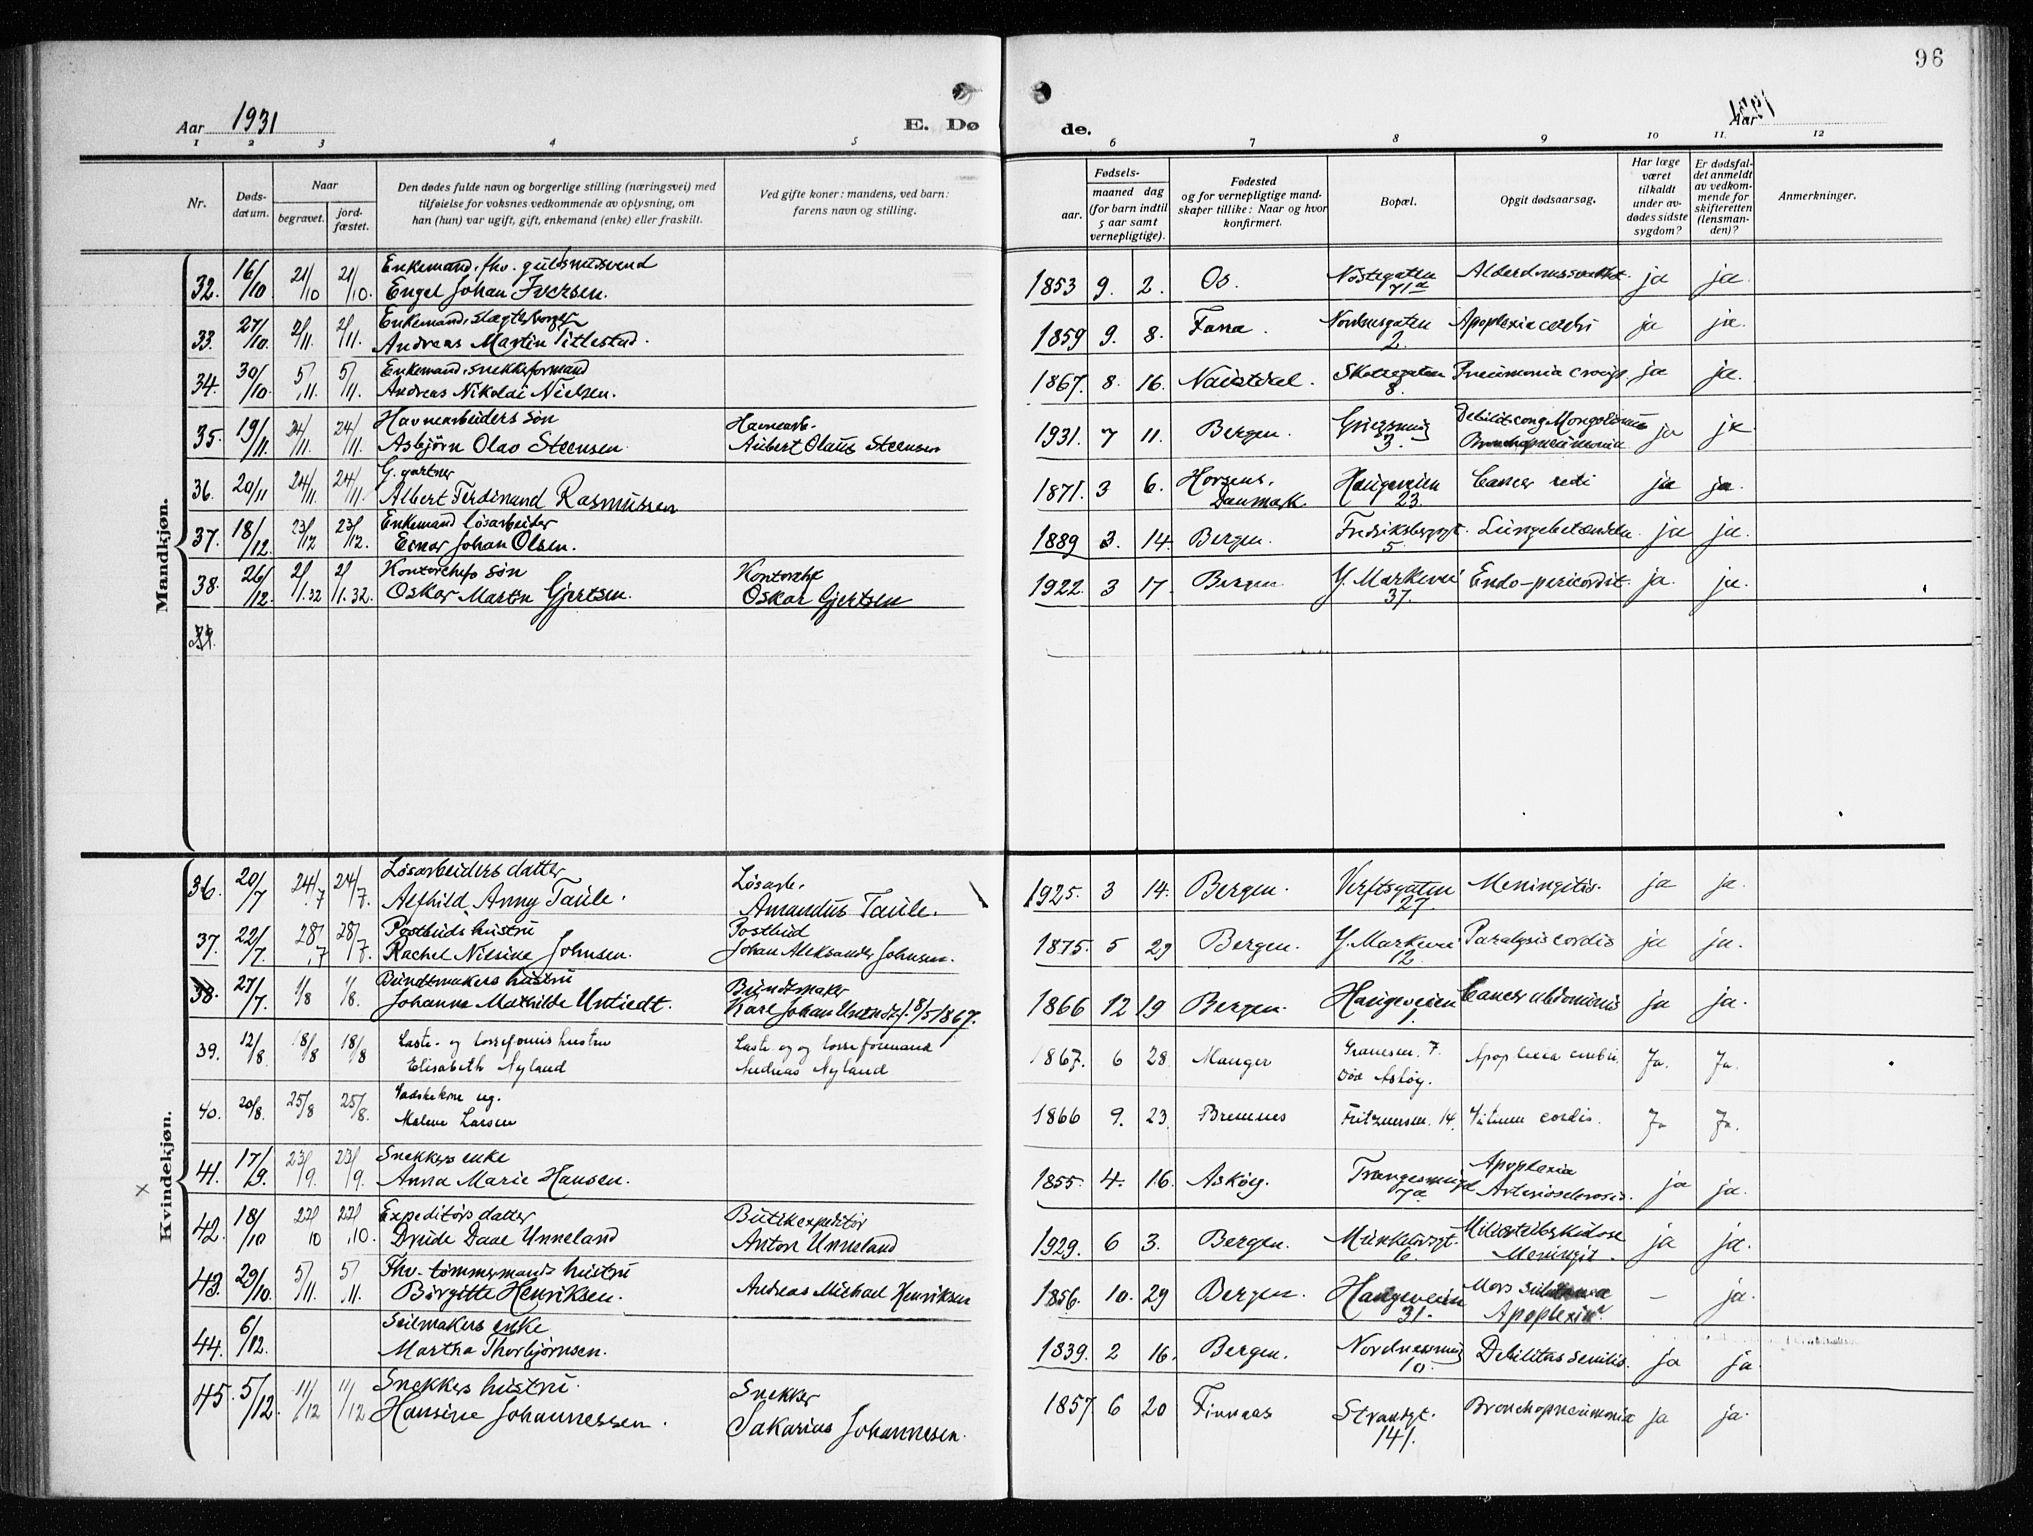 96
Aar 1931
E. Dø
de.
Aar 1931
1 2 3 4 5 6 7 8 9 10 11. 12
Nr.
Døds-
datum.
Naar
begravet.
jord-
fæstet.
Den dødes fulde navn og borgerlige stilling (næringsvei) med
tilføielse for voksnes vedkommende av oplysning, om
han (hun) var ugift, gift, enkemand (enke) eller fraskilt.
Ved gifte koner: mandens, ved barn:
farens navn og stilling.
Fødsels-
aar.
maaned dag
(for barn indtil
5 aar samt
vernepligtige).
Fødested
og for vernepligtige mand-
skaper tillike: Naar og hvor
konfirmert.
Bopæl.
Opgit dødsaarsag.
Har læge
været
tilkaldt
under av-
dødes sidste
sygdom?
Er dødsfal-
det anmeldt
av vedkom-
mende for
skifteretten
(lensman-
den)?
Anmerkninger.
Mandkjøn.
Enkemand, fhv. guldsmedsvend
32. 16/10 21/10 21/10. Engel Johan Iversen. 1853 9. 2. Os. Nøstegaten ja ja.
71a
Enkemand,
33. 27/10. 2/11. 2/11. Andreas Martin Tittlestad. 1859 9. 8. Fana. Nordnesgaten Apoplexia cerebri ja ja.
2.
Enkemand, snekkerformand
34. 30/10 5/11. 5/11. Andreas Nikolai Nielsen. 1867. 8. 16. Naustdal. Skottegaten Pneumonia ja ja.
8.
Havnearbeiders søn Havnearb.
35. 19/11. 24/11. 24/11. Asbjørn Olav Steensen. Olaus Steensen 1931. 7 11. Bergen. 3. Debilit. cong. ja ja
Bronchopneumonia
G. gartner
36. 20/11 24/11. 24/11. Albert Ferdinand Rasmussen 1871. 3 6. Horsens, Haugeveien Cancer ja ja.
Danmark 23.
Enkemand løsarbeider
37. 18/12. 23/12 23/12. Einar Johan Olsen. 1889 3. 14. Bergen. 5. ja ja.
Kontorchefs søn Kontorchef
38. 26/12. 2/1.32 2/1.32. Oskar Martin Gjertsen. Oskar Gjertsen 1922. 3 17. Bergen Y. Markevei Endo-pericardit. ja. ja
37.
39.
Kvindekjøn.
Løsarbeiders datter Løsarb.
36. 20/7 24/7 24/7. Alfhild Anny Taule. Amandus Taule. 1925. 3 14. Bergen. Verftsgaten Meningitis. ja ja.
27.
Postbuds hustru Postbud
37. 22/7. 28/7 28/7. Rachel Nilsine Johnsen. Johan Aleksander Johnsen. 1875. 5 29 Bergen. Y. Markevei Paralysis cordis ja ja.
12.
Buntmakers hustru Buntmaker
38. 27/7. 1/8 1/8. Johanne Mathilde Untiedt. Karl Johan Untiedt f. 8/5 1867. 1866 12 19 Bergen. Haugeveien Cancer abdominis ja ja.
1.
Laste- og losseform. hustru Laste og losseformand
39. 12/8. 18/8 18/8 Elisabeth Nyland Andreas Nyland 1867. 6 28 Manger 7. Apoplexia cerebri Ja. Ja.
død Askøy.
ug.
40. 20/8. 25/8 25/8. Malene Larsen 1866 9. 23. Bremnes 14. Vitium cordis. Ja Ja.
Snekkers enke
41. 17/9. 23/9. 23/9. Anna Marie Hansen. 1855. 4. 16. Askøy. Trangesmug Apoplexia ja ja.
7a Arteriosclerosis.
Expeditørs datter Butikexpeditør
42. 18/10 22/10 22/10. Drude Daae Unneland Anton Unneland 1929. 6 3. Bergen. Munkebvgt. ja ja.
6. Meningit.
Fhv. tømmermands hustru
43. 29/10. 5/11. 5/11. Birgitte Henriksen. Andreas Michael Henriksen 1856. 10. 29 Bergen Haugeveien Mors – ja.
31. Apoplexia
Seilmakers enke
44. 6/12. Martha Thorbjørnsen. 1839. 2 16. Bergen. Nordnessmug Debilitas senilis. ja ja.
10.
Snekkers hustru. Snekker
45. 5/12. 11/12 11/12 Hansine Johannessen. Sakarius Johannesen. 1857 6 20 Finnaas Strandgt. Bronchopneumonia ja ja.
141.